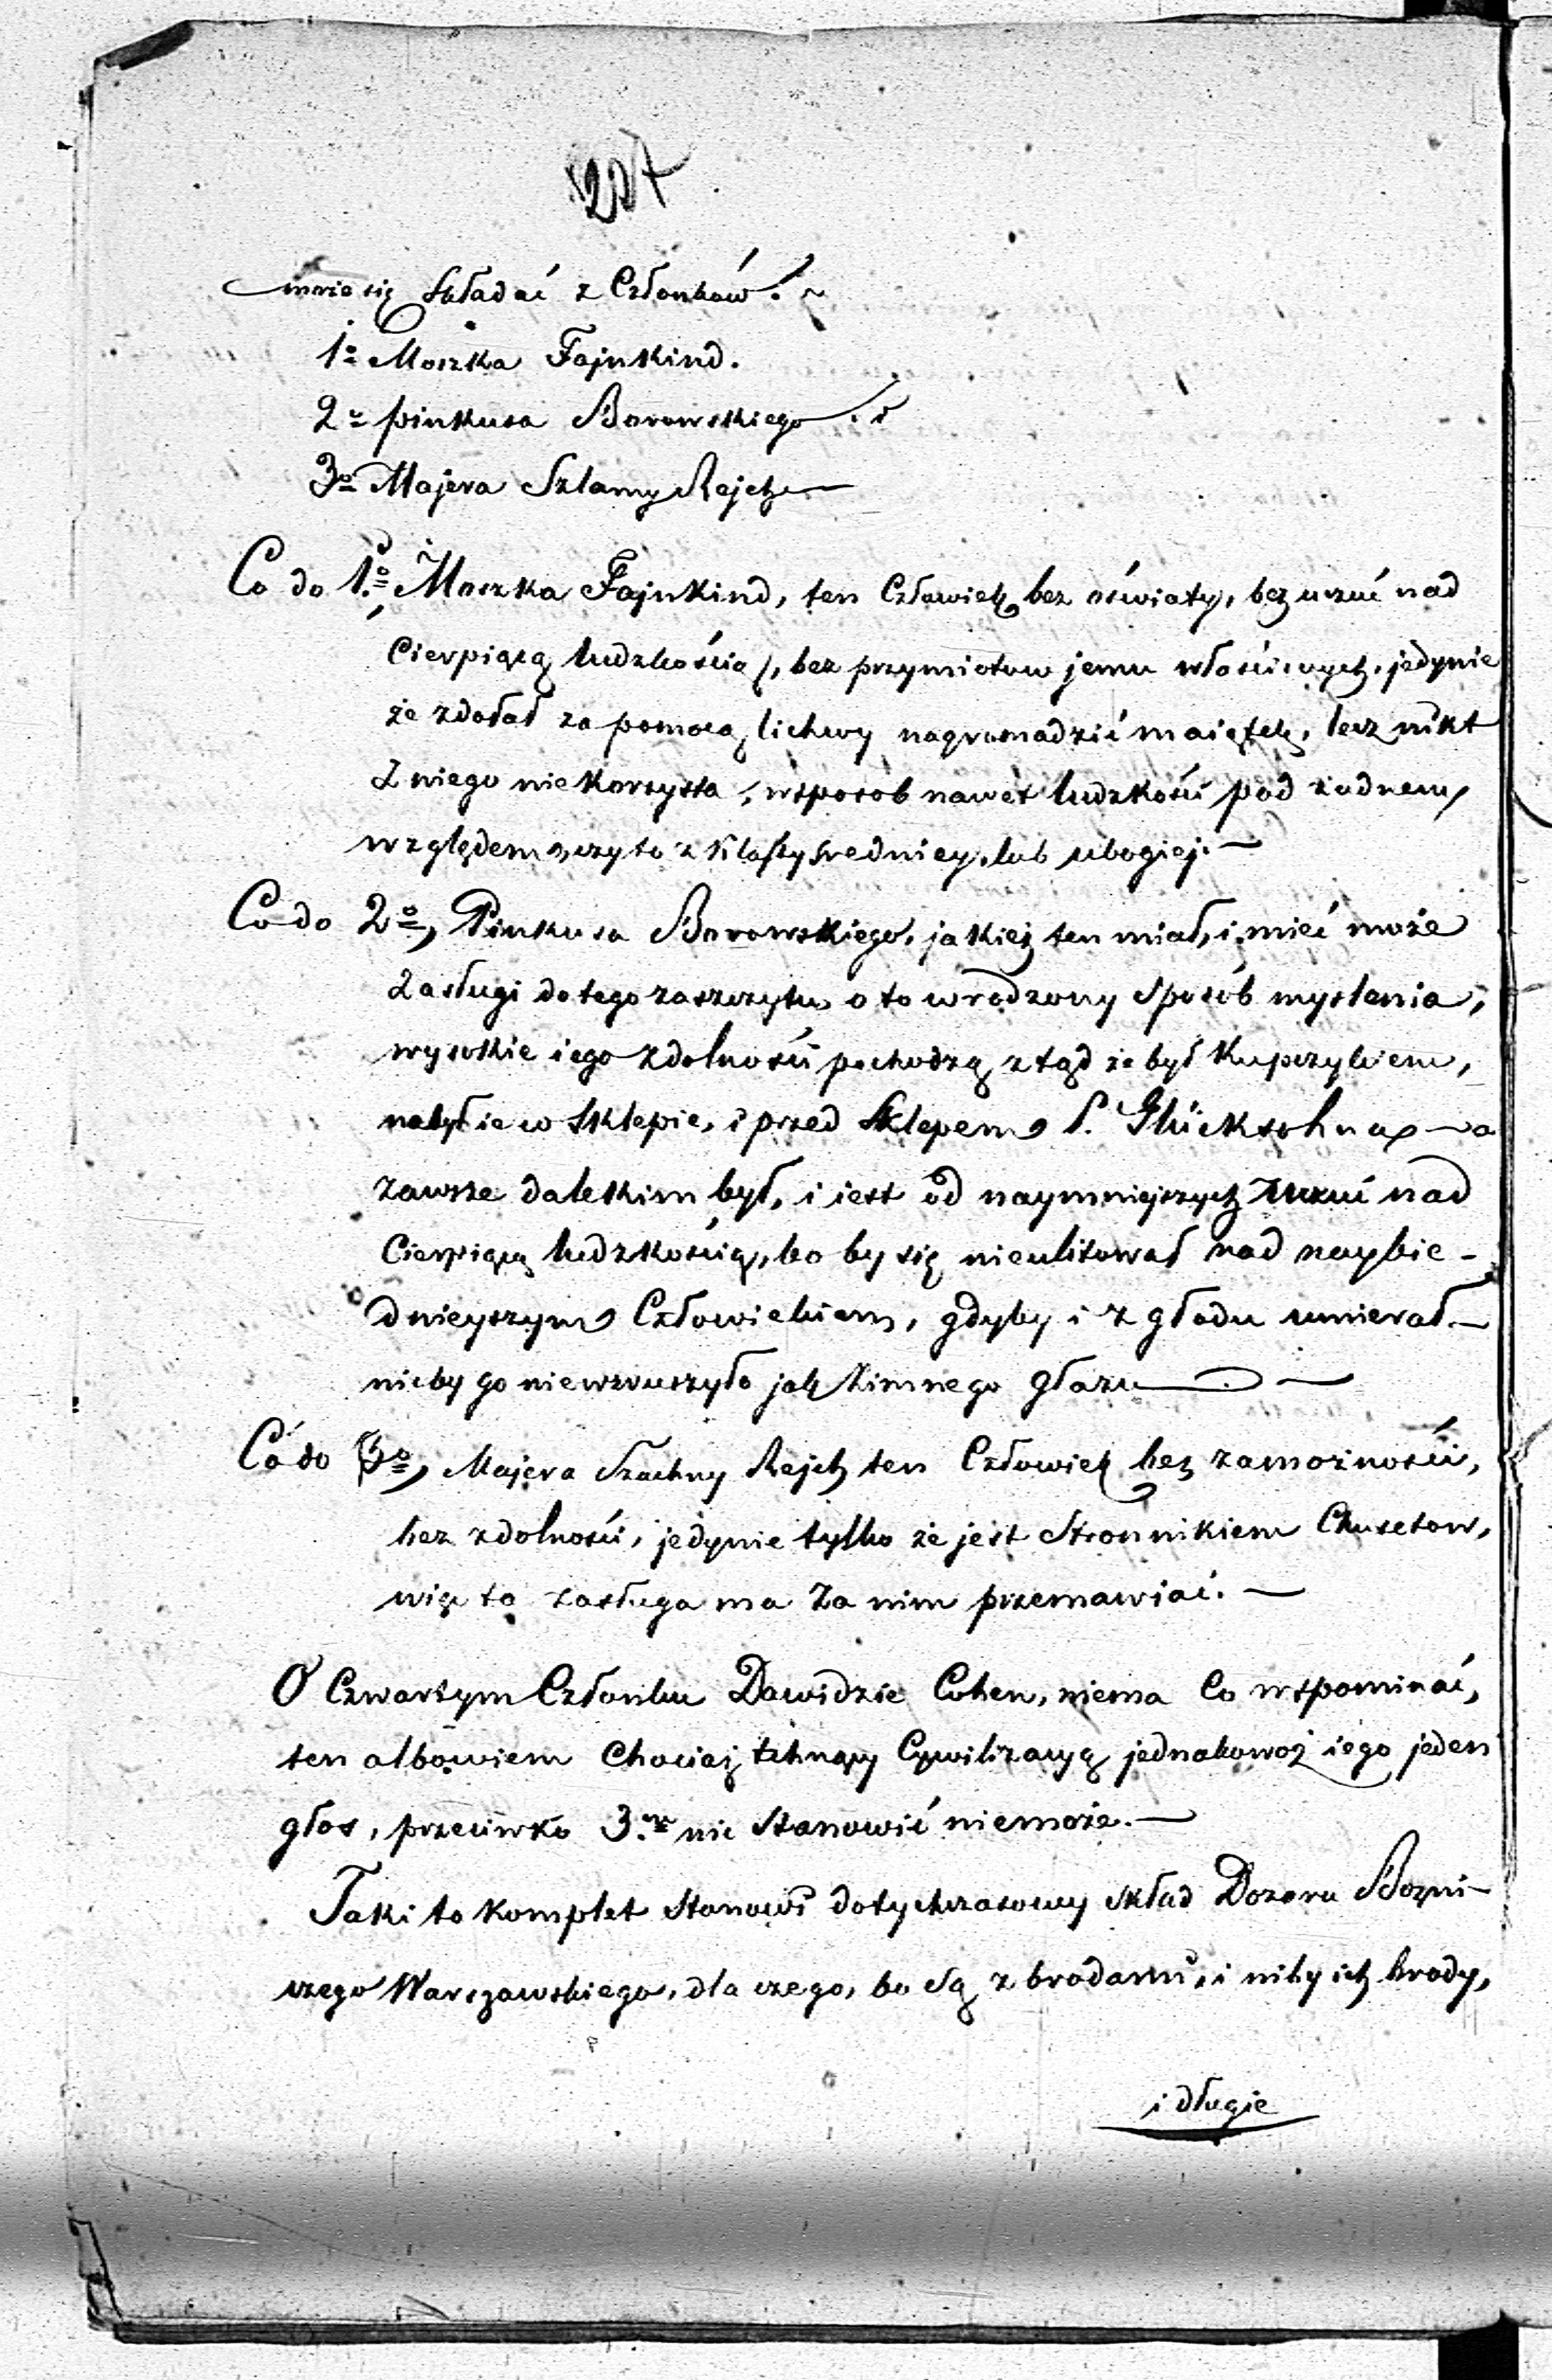 207
może się składać z Członków.
1o Moszka Fajnkind.
2o Pinkusa Borowskiego
3o Majera Szlamy Rejch
Co do 1o Moszka Fajnkind, ten Człowiek bez oświaty, bez uczuć nad
Cierpiącą ludzkością, bez przymiotow jemu właściwych, jedynie
że zdołał za pomocą lichwy nagromadzić maiątek, lecz nikt
z niego nie korzysta, wsposob nawet ludzkości pod żadnem
względem, czyto z Klassy sredniey, lub ubogiej.—
Co do 2o, Pinkusa Borowskiego, jakież ten miał, i mieć może
zasługi do tego zaszczytu, oto wrodzony sposób myslenia,
wysokie iego zdolności pochodzą ztąd że był Kupczykiem,
w sklepie, i przed sklepem S. Glücksohna — a
zawsze dalekim był, i iest od naymniejszych uczuć nad
Cierpiącą ludzkością, bo by się nieulitował nad naybie-
dnieyszym Człowiekiem, gdyby i z głodu umierał.—
nicby go niewzruszyło jak zimnego głazu —
Co do 3o, Majera Szachny Rejch ten Człowiek bez zamożności,
bez zdolności, jedynie tylko że jest Stronnikiem Chusetow,
więc ta zasługa ma za nim przemawiać.—
O Czwartym Członku Dawidzie Cohen, niema co wspominać,
ten albowiem Chociaż tchnący Cywilizacyą jednakowoż iego jeden
głos, przeciwko 3. nic stanowić niemoże.—
Taki to Komplet stanowi dotychczasowy skład Dozoru Bozni-
czego Warszawskiego, dla czego, bo są z brodami, i niby ich brody,
i długie